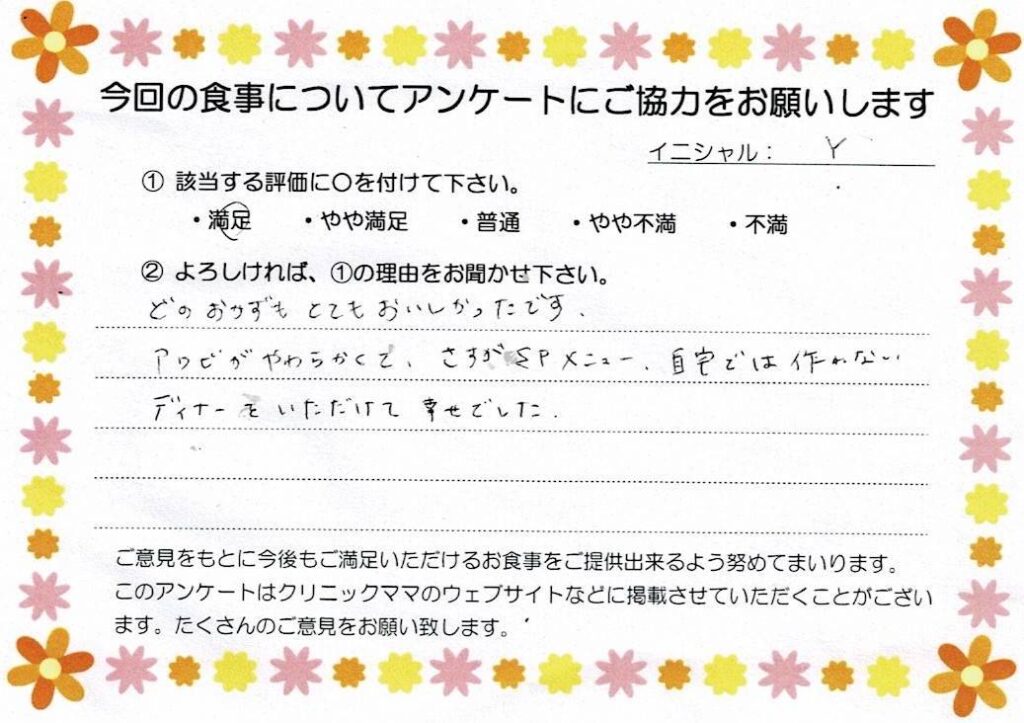 今回の食事についてアンケートにご協力をお願いします
イニシャル： Y
① 該当する評価に〇を付けて下さい。
・満足 ・やや満足 ・普通 ・やや不満 ・不満
② よろしければ、①の理由をお聞かせ下さい。
どのおかずもとてもおいしかったです.
アワビがやわらかくて、さすがSPメニュー、自宅では作れない
ディナーをいただけて幸せでした.
ご意見をもとに今後もご満足いただけるお食事をご提供出来るよう努めてまいります。
このアンケートはクリニックママのウェブサイトなどに掲載させていただくことがござい
ます。たくさんのご意見をお願い致します。